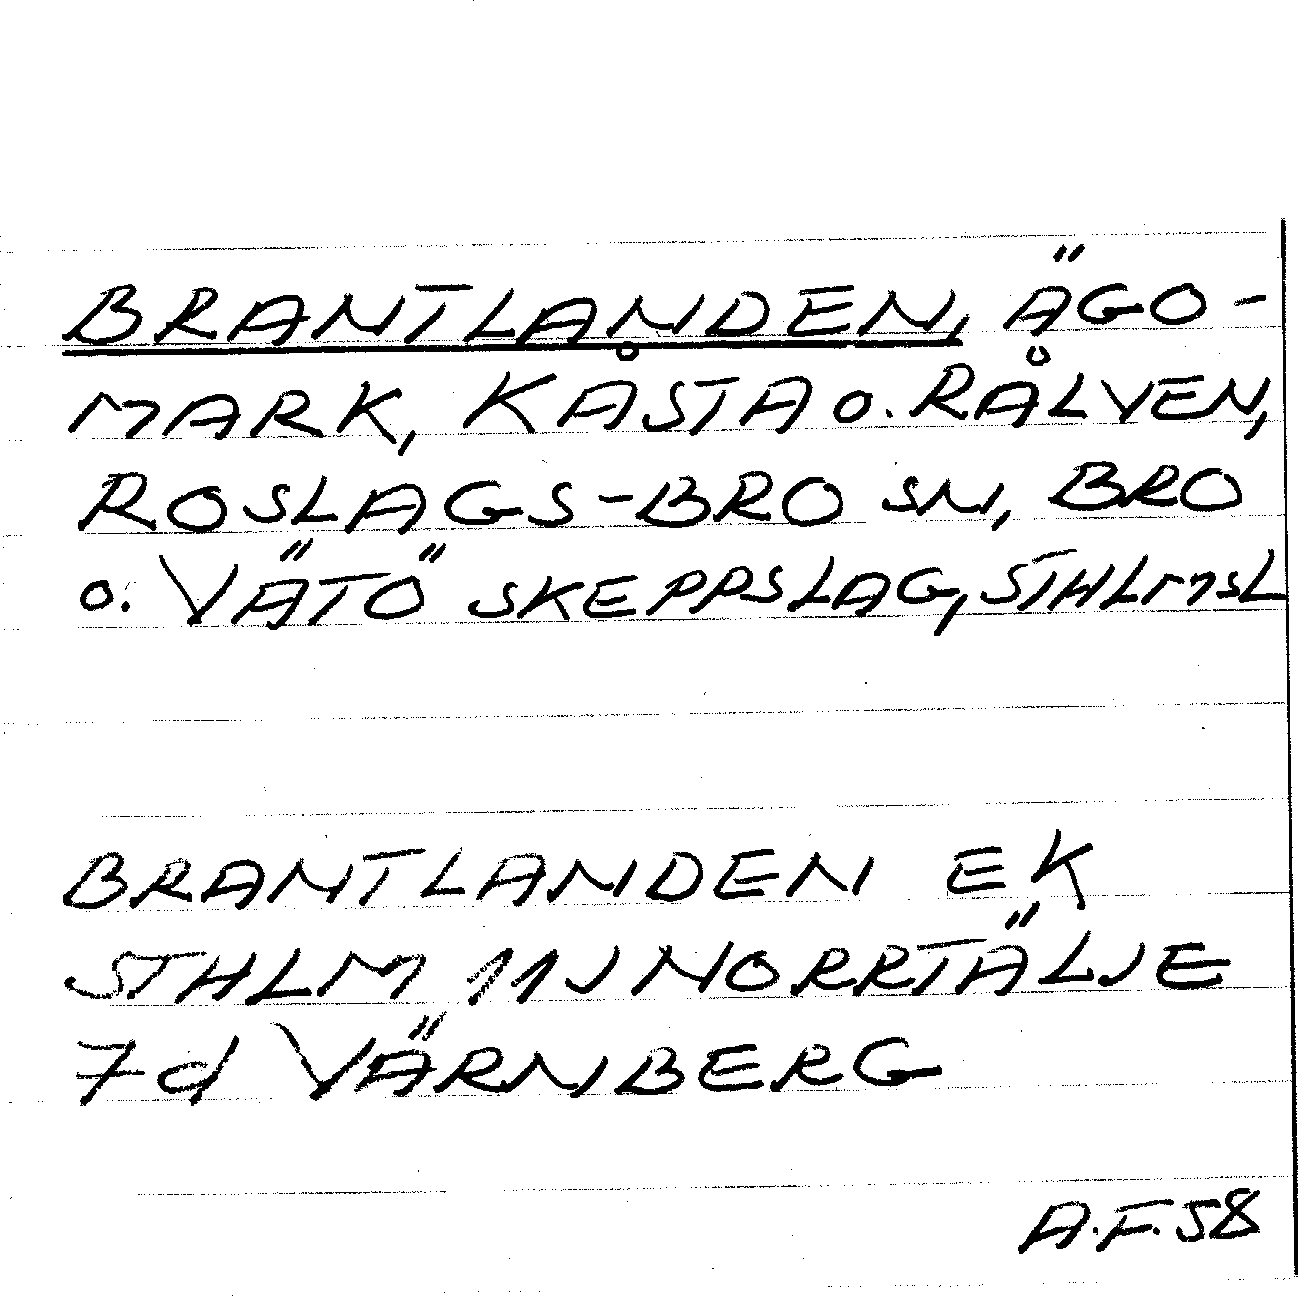 BRANTLANDEN, ÄGO-
MARK, KÅSTA o. RÅLVEN,
ROSLAGS-BRO SN, BRO
o. VÄTÖ SKEPPSLAG, STHLMSL
BRANTLANDEN EK
STHLM 11J NORRTÄLJE
7d VÄRNBERG
A.F.58